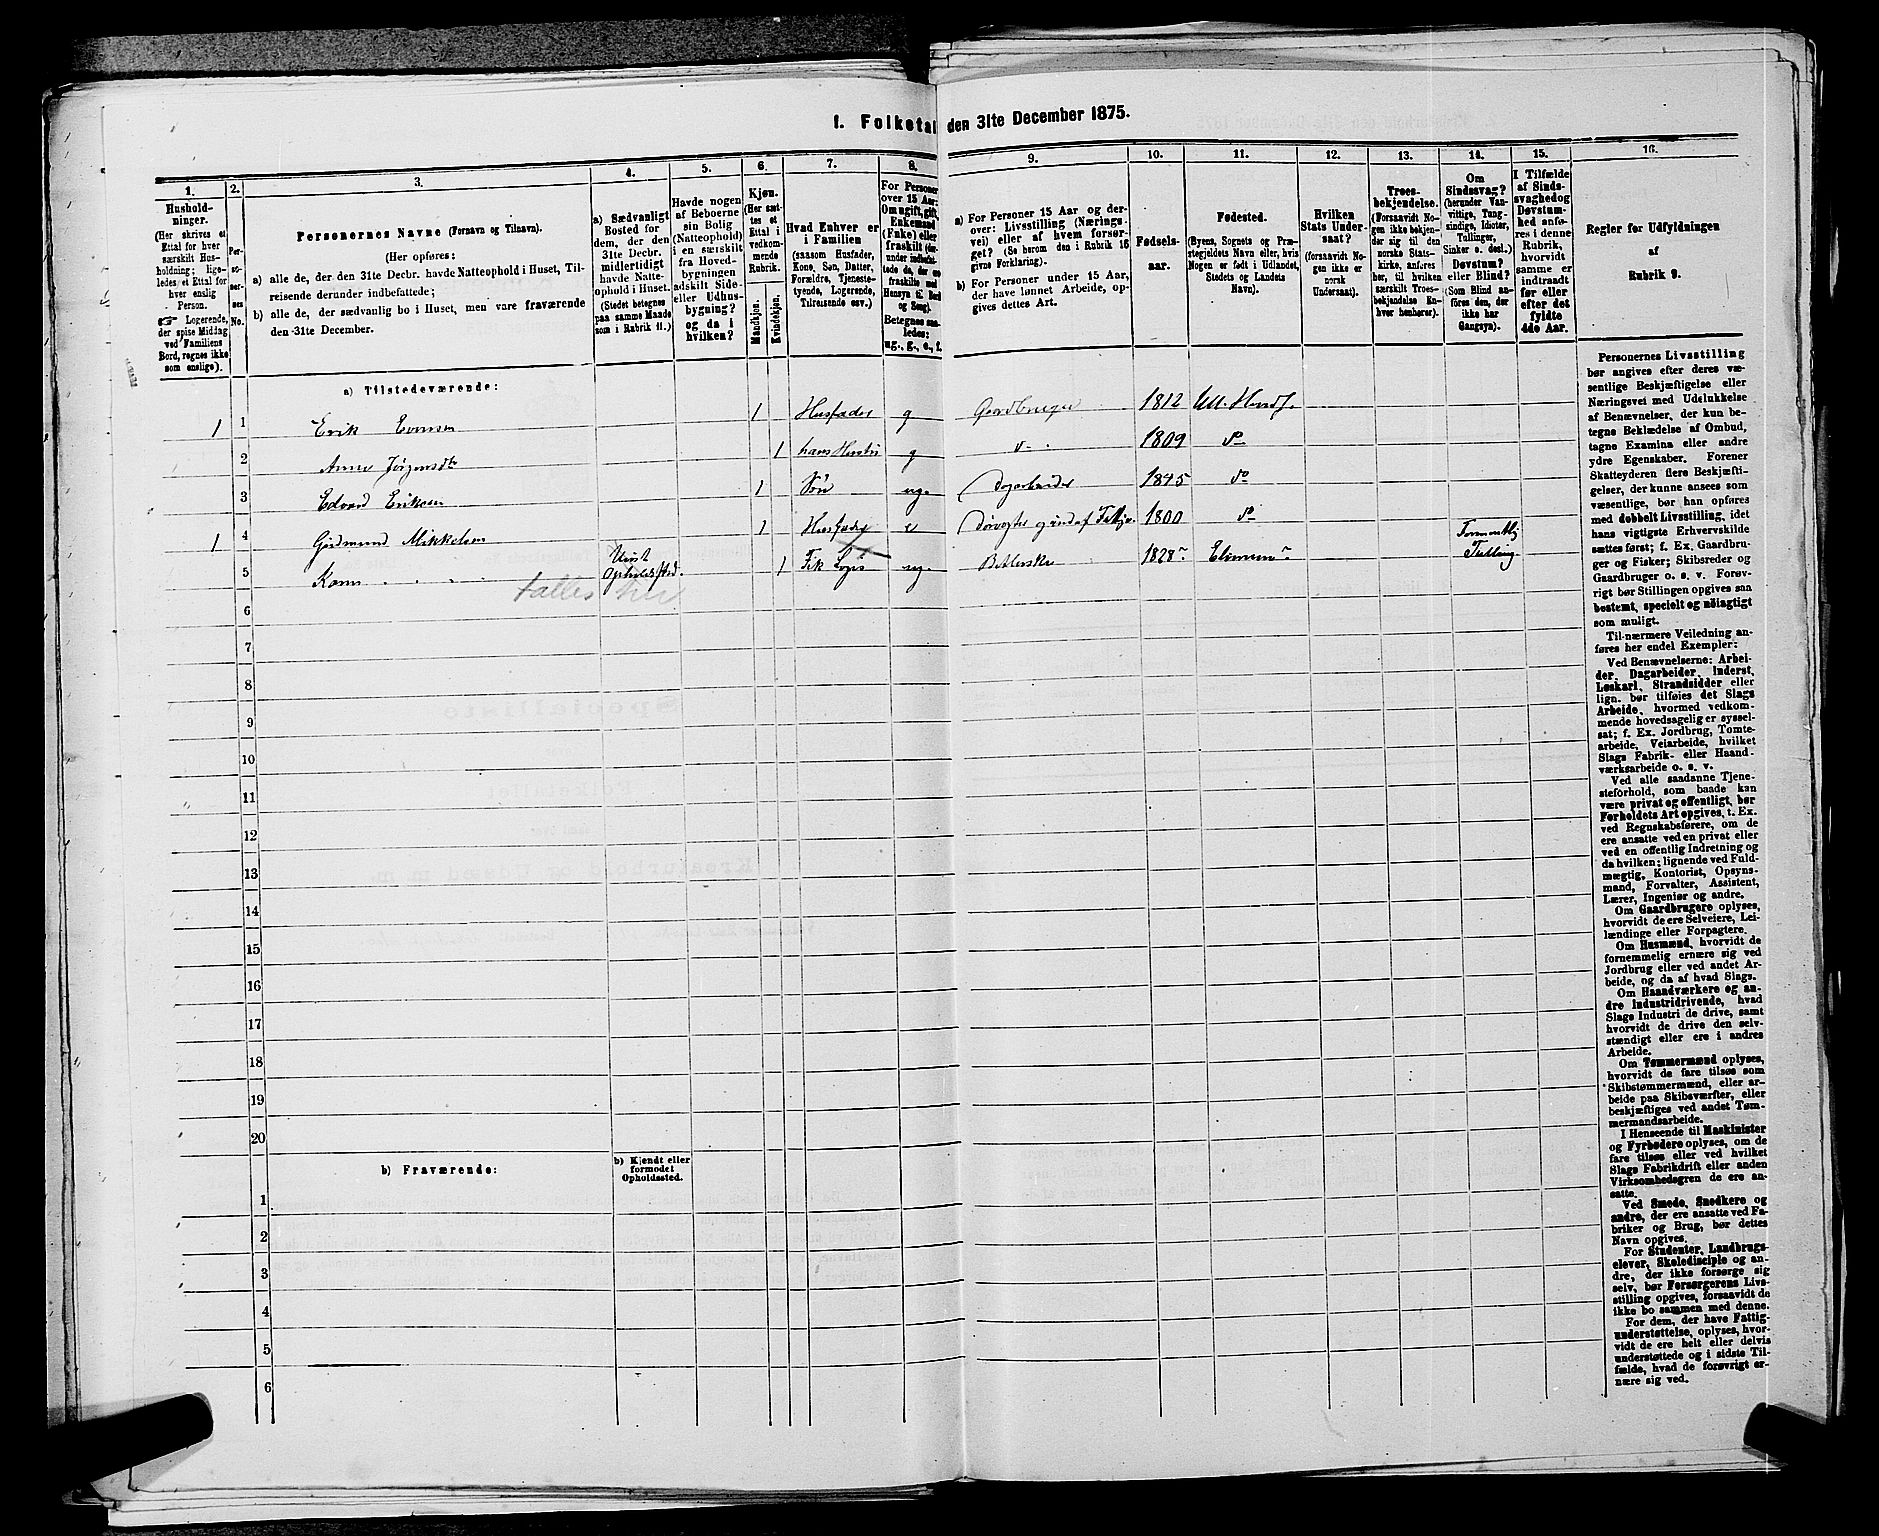 I. Folketal den 31te December 1875.
1.
Hushold-
ninger.
(Her skrives et
Ettal for hver
særskilt Hus-
holdning; lige-
ledes et Ettal for
hver enslig
Person.
☞ Logerende,
der spise Middag
ved Familiens
Bord, regnes ikke
som enslige).
2.
Per-
so-
ner-
nes
No.
3.
Personernes Navne (Fornavn og Tilnavn).
(Her opføres:
a) alle de, der den 31te Decbr. havde Natteophold i Huset, Til-
reisende derunder indbefattede;
b) alle de, der sædvanlig bo i Huset, men vare fraværende
den 31te December.
4.
a) Sædvanligt
Bosted for
dem, der den
31te Decbr.
midlertidigt
havde Natte-
ophold i Huset.
(Stedet betegnes
paa samme Maade
som i Rubrik 11.)
5.
Havde nogen
af Beboerne
sin Bolig
(Natteophold)
i en særskilt
fra Hoved-
bygningen
adskilt Side-
eller Udhus-
bygning?
og da i
hvilken?
6.
Kjøn.
(Her sæt-
tes et
Ettal i
vedkom-
mende
Rubrik.
Mandkjøn.
Kvindekjøn.
7.
Hvad Enhver er
i Familien
(saasom Husfader,
Kone, Søn, Datter,
Forældre, Tjeneste-
tyende, Logerende,
Tilreisende osv.)
8.
For Personer
over 15 Aar:
Om ugift, gift,
Enkemand
(Enke) eller
fraskilt
Betegnes saa-
ledes:
ug., g., e., f.
9.
a) For Personer 15 Aar og der-
over: Livsstilling (Nærings-
vei) eller af hvem forsør-
get? (Se herom den i Rubrik 16
givne Forklaring).
b) For Personer under 15 Aar,
der have lønnet Arbeide, op-
gives dettes Art.
10.
Fødsels-
aar.
11.
Fødested.
(Byens, Sognets og Præ-
stegjeldets Navn eller, hvis
Nogen er født i Udlandet,
Stedets og Landets
Navn).
12.
Hvilken
Stats Under-
saat?
(forsaavidt No-
gen ikke er
norsk
Undersaat).
13.
Troes-
bekjendelse.
(Forsaavidt No-
gen ikke bekjen-
der sig til den
norske Stats-
kirke, anføres
her, til hvilken
særskilt Troes-
bekjendelse En-
hver henhører).
14.
Om
Sindssvag?
(herunder Van-
vittige, Tung-
sindige, Idioter,
Tullinger,
Sinker o. desl.).
Døvstum?
eller Blind?
(Som Blind an-
føres den, der
ikke har
Gangsyn).
15.
I Tilfælde
af Sinds-
svaghed og
Døvstum-
hed anfø-
res i denne
Rubrik,
hvorvidt
samme er
indtraadt
før eller
efter det
fyldte
4de Aar.
16.
Regler for Udfyldningen
af
Rubrik 9.
a) Tilstedeværende:
1 1 Erik Evensen 1 Husfader g Gaardbruger 1812
2 Anne Jørgensdtr 1 hans Hustru g 1809 do
3 Edvard Eriksen 1 Søn ug. Dagarbeider 1845 do
1 4 Gudmund Mikkelsen 1 Husfader e 1800 do
5 Karen Uvist Opholdssted. 1 Fik Logis ug. Betlerske 1828 Tulling
talles her
6
7
8
9
10
11
12
13
14
15
16
17
18
19
20
b) Fraværende:
b) Kjendt eller
formodet
Opholdssted.
1
2
3
4
5
6
Personernes Livsstilling
bør angives efter deres væ-
sentlige Beskjæftigelse eller
Næringsvei med Udelukkelse
af Benævnelser, der kun be-
tegne Beklædelse af Ombud,
tagne Examina eller andre
ydre Egenskaber. Forener
Skatteyderen flere Beskjæfti-
gelser, der kunne ansees som
væsentlige, bør han opføres
med dobbelt Livsstilling, idet
hans vigtigste Erhvervskilde
sættes først; f. Ex. Gaardbru-
ger og Fisker; Skibsreder og
Gaardbruger o. s. v. Forøv-
rigt bør Stillingen opgives saa
bestemt, specielt og nøiagtigt
som muligt.
Til nærmere Veiledning an-
føres her endel Exempler:
Ved Benævnelserne: Arbei-
der, Dagarbeider, Inderst,
Løskarl, Strandsidder eller
lign. bør tilføies det Slags
Arbeide, hvormed vedkom-
mende hovedsagelig er syssel-
sat; f. Ex. Jordbrug, Tomte-
arbeide, Veiarbeide, hvilket
Slags Fabrik- eller Haand-
værksarbeide o. s. v.
Ved alle saadanne Tjene-
steforhold, som baade kan
være privat og offentligt, bør
Forholdets Art opgives, t. Ex.
ved Regnskabsførere, om de
ere ansatte ved en privat eller
ved en offentlig Indretning og
da hvilken; lignende ved Fuld-
mægtig, Kontorist, Opsyns-
mand, Forvalter, Assistent,
Lærer, Ingeniør og andre.
Om Gaardbrugere oplyses,
hvorvidt de ere Selveiere, Lei-
lændinge eller Forpagtere.
Om Husmænd, hvorvidt de
fornemmelig ernære sig ved
Jordbrug eller ved andet Ar-
beide, og da af hvad Slags.
Om Haandværkere og an-
dre Industridrivende, hvad
Slags Industri de drive, samt
hvorvidt de drive den selv-
stændigt eller ere i andres
Arbeide.
Om Tømmermænd oplyses,
hvorvidt de fare tilsøs som
Skibstømmermænd, eller ar-
beide paa Skibsværfter, eller
beskjæftiges ved andet Tøm-
mermandsarbeide.
I Henseende til Maskinister
og Fyrbødere oplyses, om de
fare tilsøs eller ved hvilket
Slags Fabrikdrift eller anden
Virksomhedsgren de ere an-
satte.
Ved Smede, Snedkere og
andre, der ere ansatte ved Fa-
briker og Brug, bør dettes
Navn opgives.
For Studenter, Landbrugs-
elever, Skoledisciple og an-
dre, der ikke forsørge sig
selv, bør Forsørgerens Livs-
stilling opgives, forsaavidt de
ikke bo sammen med denne.
For dem, der have Fattig-
understøttelse, oplyses, hvor-
vidt de ere helt eller delvis
understøttede og i sidste Til-
fælde, hvad de forøvrigt er-
nære sig ved.